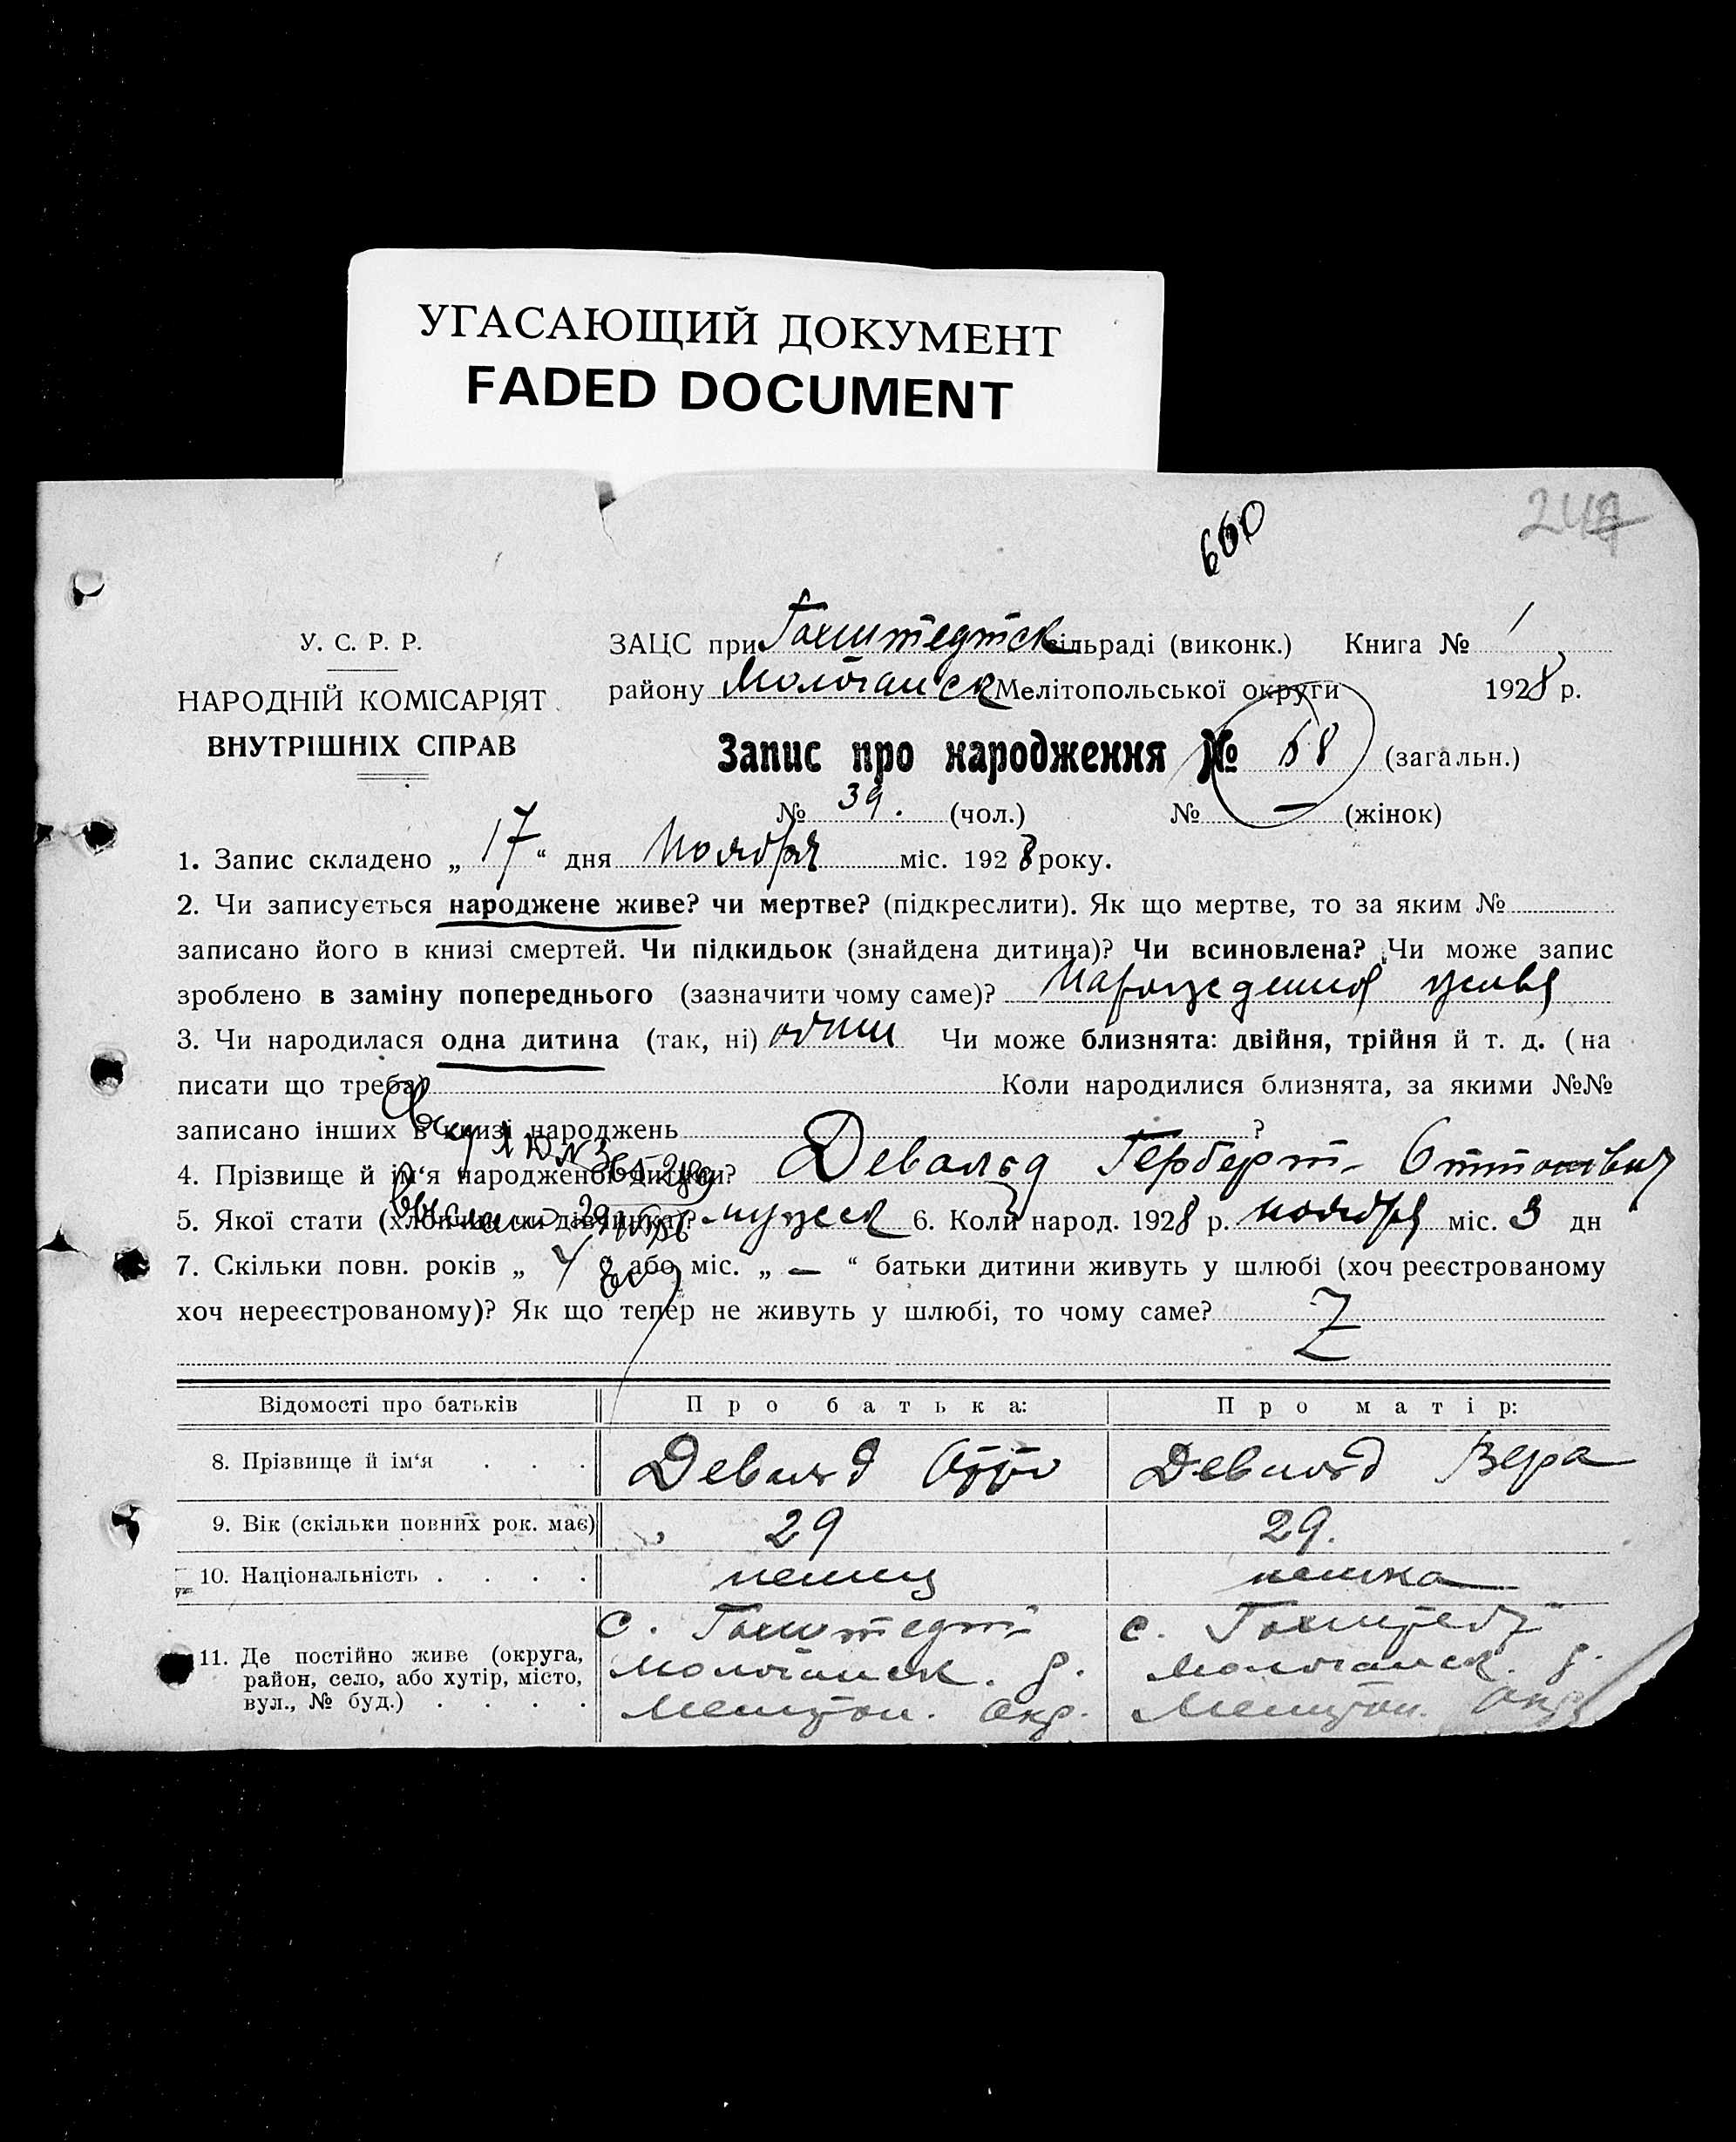 УГАСАЮЩИЙ ДОКУМЕНТ
FADED DOCUMENT
660
У. С. Р. Р.
НАРОДНІЙ КОМІСАРІЯТ
ВНУТРІШНІХ СПРАВ
ЗАЦС при Гохштедтск сільраді (виконк.) Книга № 1
району Молочанск Мелітопольської округи 1928 р.
Запис про народження № 68 (загальн.)
№ 39. (чол.) № — (жінок)
1. Запис складено „ 17 “ дня Ноября міс. 1928 року.
2. Чи записується народжене живе? чи мертве? (підкреслити). Як що мертве, то за яким №
записано його в книзі смертей. Чи підкидьок (знайдена дитина)? Чи всиновлена? Чи може запис
зроблено в заміну попереднього (зазначити чому саме)?
3. Чи народилася одна дитина (так, ні) один Чи може близнята: двійня, трійня й т. д. (на
писати що треба) Коли народилися близнята, за якими №№
записано інших в книзі народжень ?
4. Прізвище й ім‘я народженої дитини? Девальд Герберт Оттович
5. Якої стати (хлопчик чи дівчинка)? мужск 6. Коли народ. 1928 р. ноября міс. 3 дн
7. Скільки повн. років „ 4 “ або міс. „ — “ батьки дитини живуть у шлюбі (хоч реєстрованому
хоч нереєстрованому)? Як що тепер не живуть у шлюбі, то чому саме?
Відомості про батьків Про батька: Про матір:
8. Прізвище й ім‘я . . . Девальд Отто Девальд Вера
9. Вік (скільки повних рок. має) 29 29.
10. Національність . . . . немец немка
11. Де постійно живе (округа, район, село, або хутір, місто, вул., № буд.) . . . .
с. Гохштедт с. Гохштедт
Молочанск. р. Молочанск. р.
Мелитоп. Окр. Мелитоп. Окр.